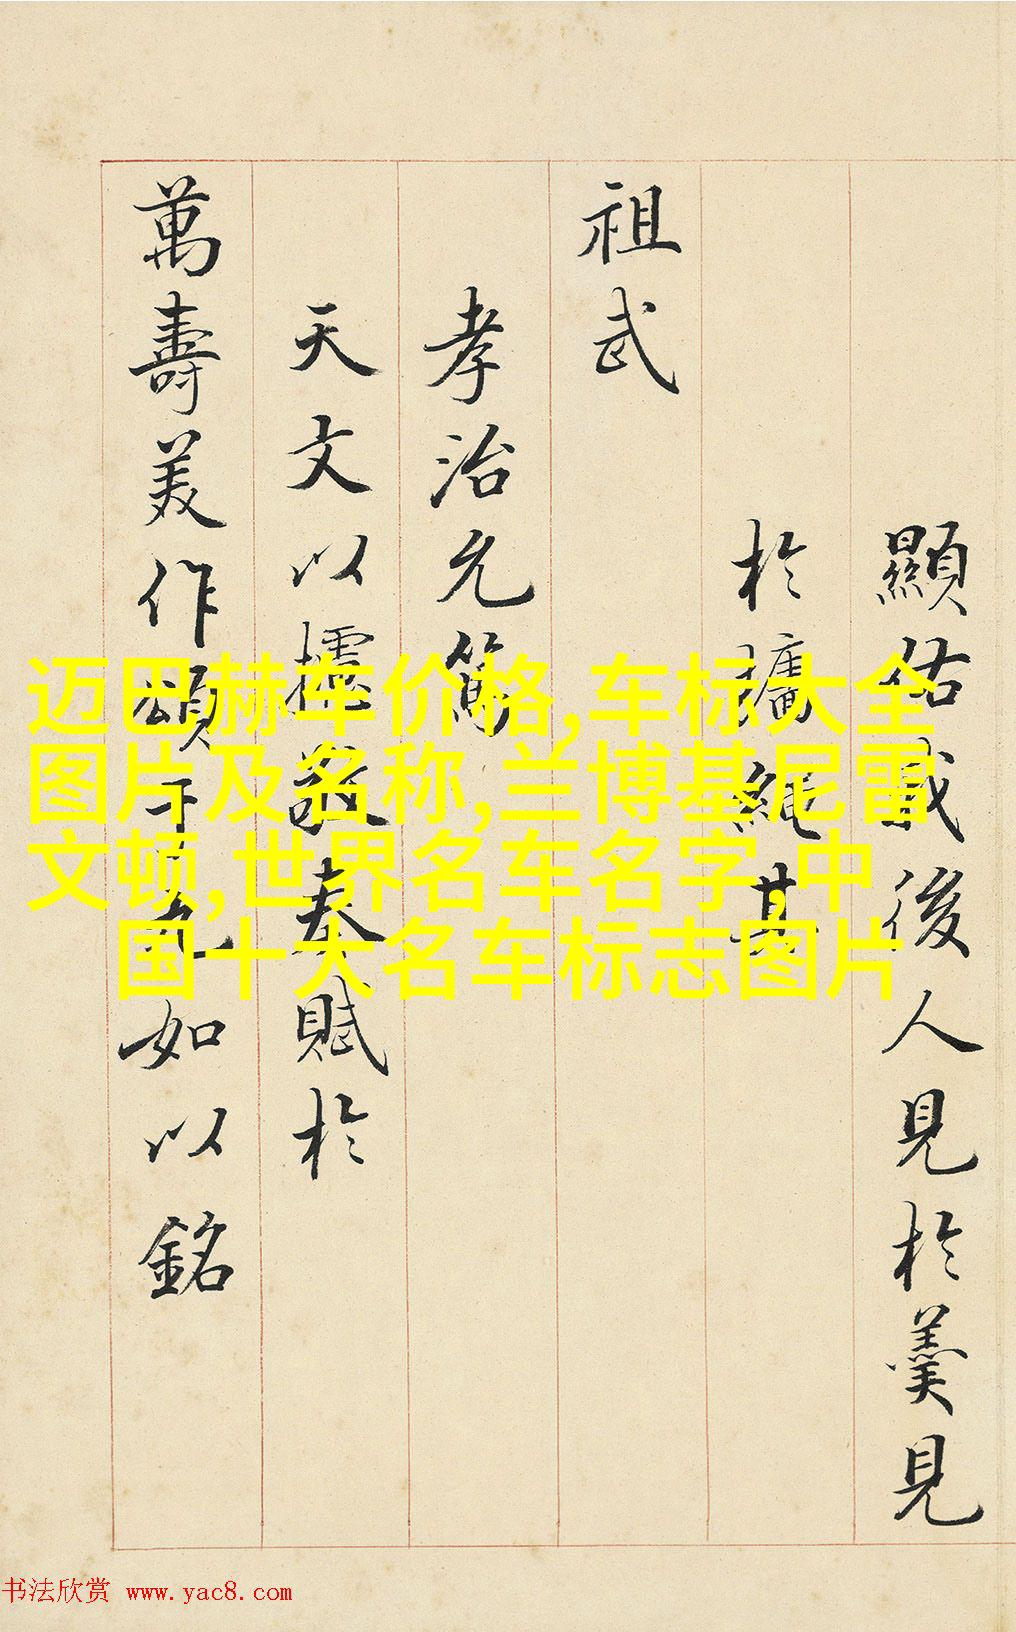 顯佑後人見於羹見
於牆繩其
祖武
孝治允篤
天文以攄敬奏賦於
萬壽美作頌于九如以銘
迈巴赫车价格,车标大全
图片及名称,兰博基尼雷
文顿,世界名车名字,中
国十大名车标志图片
书法欣赏 www.yac8.com